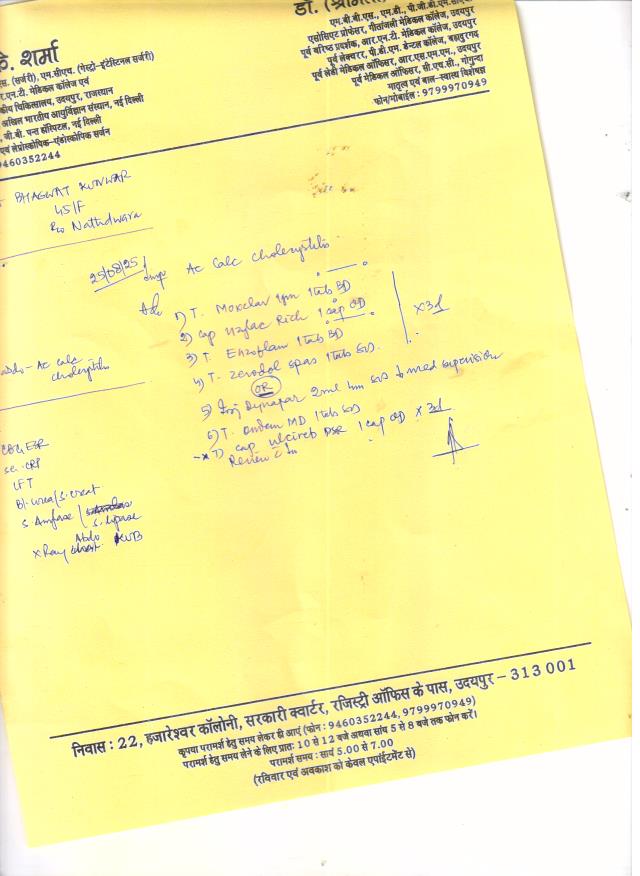 डॉ. (श्रीमती
एम.बी.बी.एस., एम.डी., पी.जी.डी.एम.सी
एसोसिएट प्रोफेसर, गीतांजली मेडिकल कॉलेज, उदयपुर
पूर्व वरिष्ठ प्रदर्शक, आर.एन.टी. मेडिकल कॉलेज, उदयपुर
पूर्व लेक्चरर, पी.डी.एम. डेन्टल कॉलेज, बहादुरगढ़
पूर्व लेडी मेडिकल ऑफिसर, आर.एस.एम.एम., उदयपुर
पूर्व मेडिकल ऑफिसर, सी.एच.सी., गोगुन्दा
मातृत्व एवं बाल-स्वास्थ्य विशेषज्ञ
फोन/मोबाईल : 9799970949
के. शर्मा
एस. (सर्जरी), एम.सीएच. (गेस्ट्रो-इंटेस्टिनल सर्जरी)
र.एन.टी. मेडिकल कॉलेज एवं
कीय चिकित्सालय, उदयपुर, राजस्थान
अखिल भारतीय आयुर्विज्ञान संस्थान, नई दिल्ली
जी.बी. पन्त हॉस्पिटल, नई दिल्ली
एवं लेप्रोस्कोपिक-एंडोस्कोपिक सर्जन
9460352244
BHAGWAT KUNWAR
45/F
R/o Nathdwara
25/08/25
Ac Calc Cholecystitis
Adv
1) T. Moxclav 1gm 1tab BD
2) Cap Rich 1 cap OD
3) T. Enzoflam 1tab BD
4) T. Zerodol Spas 1tab SOS.
x3d
OR
5) Inj Dynapar 2ml Im SOS med supervision
6) T. Ondem MD 1tab SOS
7) Cap DSR 1 cap OD x 3d
Review
Ac Calc
Cholecystitis
CBC ESR
se. CRP
LFT
Bl. Urea/S. Creat
S. Amylase /
S. Lipase
X Ray Abdo KUB
निवास : 22, हजारेश्वर कॉलोनी, सरकारी क्वार्टर, रजिस्ट्री ऑफिस के पास, उदयपुर – 313 001
कृपया परामर्श हेतु समय लेकर ही आएं (फोन : 9460352244, 9799970949)
परामर्श हेतु समय लेने के लिए प्रातः 10 से 12 बजे अथवा सांय 5 से 8 बजे तक फोन करें।
परामर्श समय : सायं 5.00 से 7.00
(रविवार एवं अवकाश को केवल एपॉईंटमेंट से)